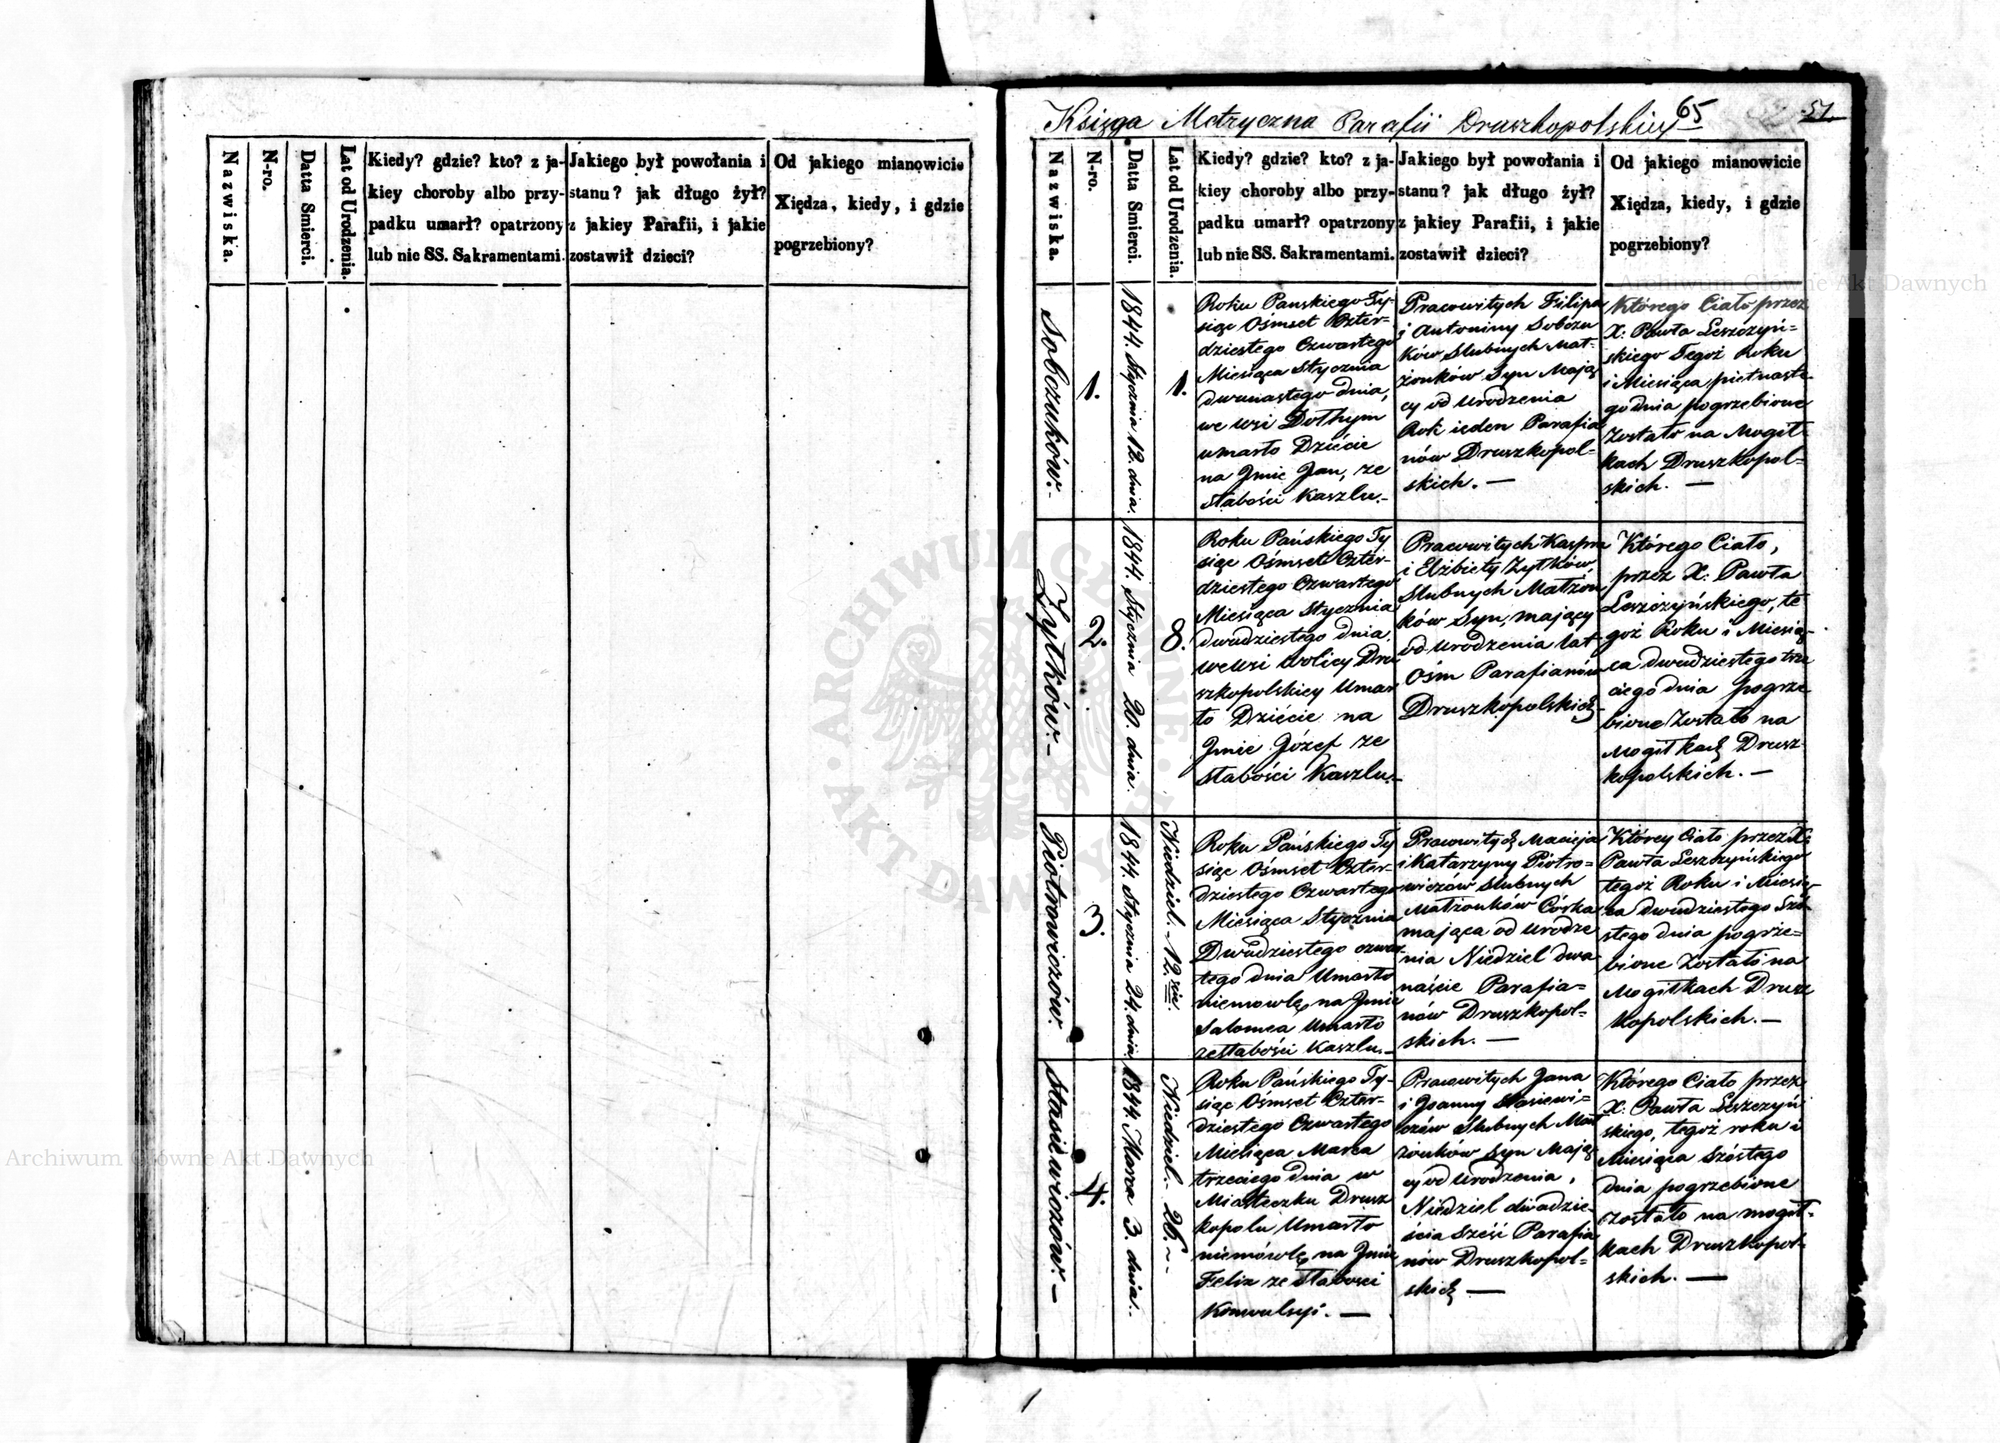 Nazwiska.
N-ro.
Datta Smierci.
Lat od Urodzenia.
Kiedy? gdzie? kto? z ja-
kiey choroby albo przy-
padku umarł? opatrzony
lub nie SS. Sakramentami.
Jakiego był powołania i
stanu? jak długo żył?
z jakiey Parafii, i jakie
zostawił dzieci?
Od jakiego mianowicie
Xiędza, kiedy, i gdzie
pogrzebiony?
Księga Metryczna Parafii Druszkopolskiey
65
51
Nazwiska.
N-ro.
Datta Smierci.
Lat od Urodzenia.
Kiedy? gdzie? kto? z ja-
kiey choroby albo przy-
padku umarł? opatrzony
lub nie SS. Sakramentami.
Jakiego był powołania i
stanu? jak długo żył?
z jakiey Parafii, i jakie
zostawił dzieci?
Od jakiego mianowicie
Xiędza, kiedy, i gdzie
pogrzebiony?
Sobczuków.-
1.
1844. Stycznia 12. dnia.
1.
Roku Panskiego Ty-
siąc Ośmset Czter-
dziestego Czwartego
Miesiąca Stycznia
dwunastego dnia,
we wsi Dołhym
umarło Dziécie
na Jmie Jan, ze
słabości Kaszlu.-
Pracowitych Filipa
i Antoniny Sobczu
ków Slubnych Mał-
żonków Syn Mają
cy od Urodzenia
Rok ieden Parafia
nów Druszkopol-
skich. —
Którego Ciało przez
X: Pawła Leszczyń-
skiego Tegoż Roku
i Miesiąca piętnaste-
go dnia pogrzebione
Zostało na Mogił-
kach Druszkopol-
skich. —
Zytków.-
2.
1844. Stycznia 20. dnia.
8.
Roku Pańskiego Ty
siąc Ośmset Czter-
dziestego Czwartego
Miesiąca Stycznia
dwudziestego dnia,
we wsi Wolicy Dru
szkopolskiey Umar
ło Dziécie na
Jmie Józef ze
słabości Kaszlu.-
Pracowitych Kaspra
i Elżbiety Zytków,
Slubnych Małżon
ków Syn, mający
od Urodzenia lat
Ośm Parafianów
Druszkopolskich-
Którego Ciało,
przez X: Pawła
Leszczyńskiego, te
goż Roku i Miesią-
ca dwudziestego trze
ciego dnia pogrze
bione Zostało na
Mogiłkach Drusz
kopolskich. —
Piotrowiczów.
3.
1844. Stycznia 24. dnia.
Niedziel.- 12.ście
Roku Pańskiego Ty
siąc Ośmset Czter-
dziestego Czwartego
Miesiąca Stycznia
Dwudziestego czwar
tego dnia Umarło
niemowlę na Jmie
Salomea Umarło
ze słabości Kaszlu.-
Pracowitych Macieja
i Katarzyny Piotro-
wiczów Slubnych
Małżonków Córka
mająca od Urodze
nia Niedziel dwa
naście Parafia-
nów Druszkopol-
skich. —
Którey Ciało przez X:
Pawła Leszczyńskiego
tegoż Roku i Miesią-
ca dwudziestego Szó-
stego dnia pogrze-
bione Zostało na
Mogiłkach Drusz
kopolskich. —
Stasiewiczów.-
4.
1844. Marca 3. dnia.
Niedziel.- 26.-
Roku Pańskiego Ty-
siąc Ośmset Czter-
dziestego Czwartego
Miesiąca Marca
trzeciego dnia w
Miasteczku Drusz
kopolu Umarło
niemówlę na Jmie
Felix ze Słabości
Konwulsyi. —
Pracowitych Jana
i Joanny Stasiewi-
czów Slubnych Mał
żonków Syn Mają
cy od Urodzenia,
Niedziel dwadzie
ścia Sześć Parafia
nów Druszkopol-
skich —
Którego Ciało przez
X: Pawła Leszczyń
skiego, tegoż roku i
Miesiąca Szóstego
dnia pogrzebione
Zostało na mogił-
kach Druszkopol-
skich. —
Archiwum Główne Akt Dawnych
ARCHIWUM GŁÓWNE AKT DAWNYCH
Archiwum Główne Akt Dawnych